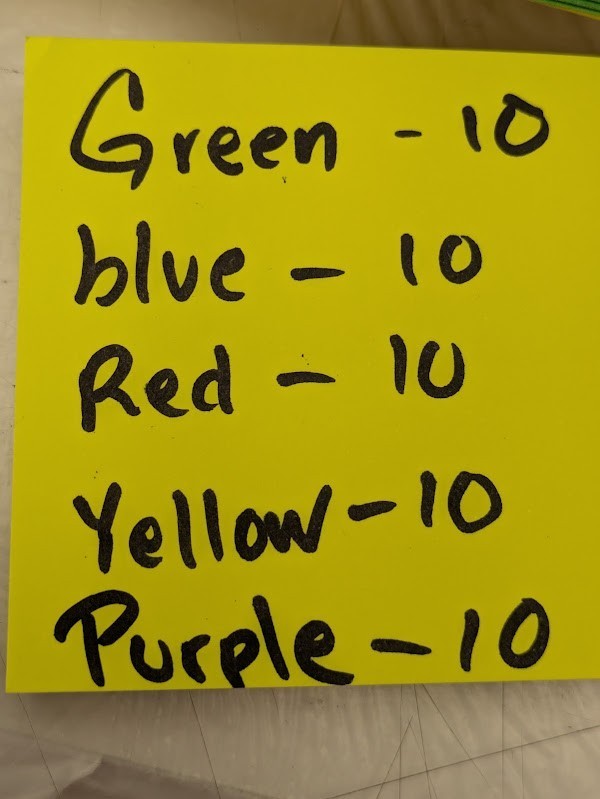 Green - 10
blue - 10
Red - 10
Yellow - 10
Purple - 10